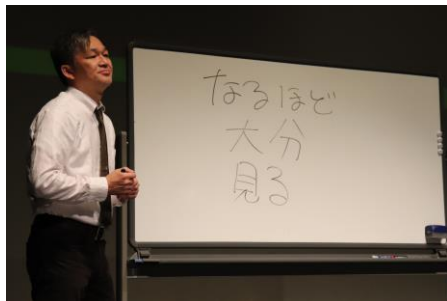 なるほど
大分
見る